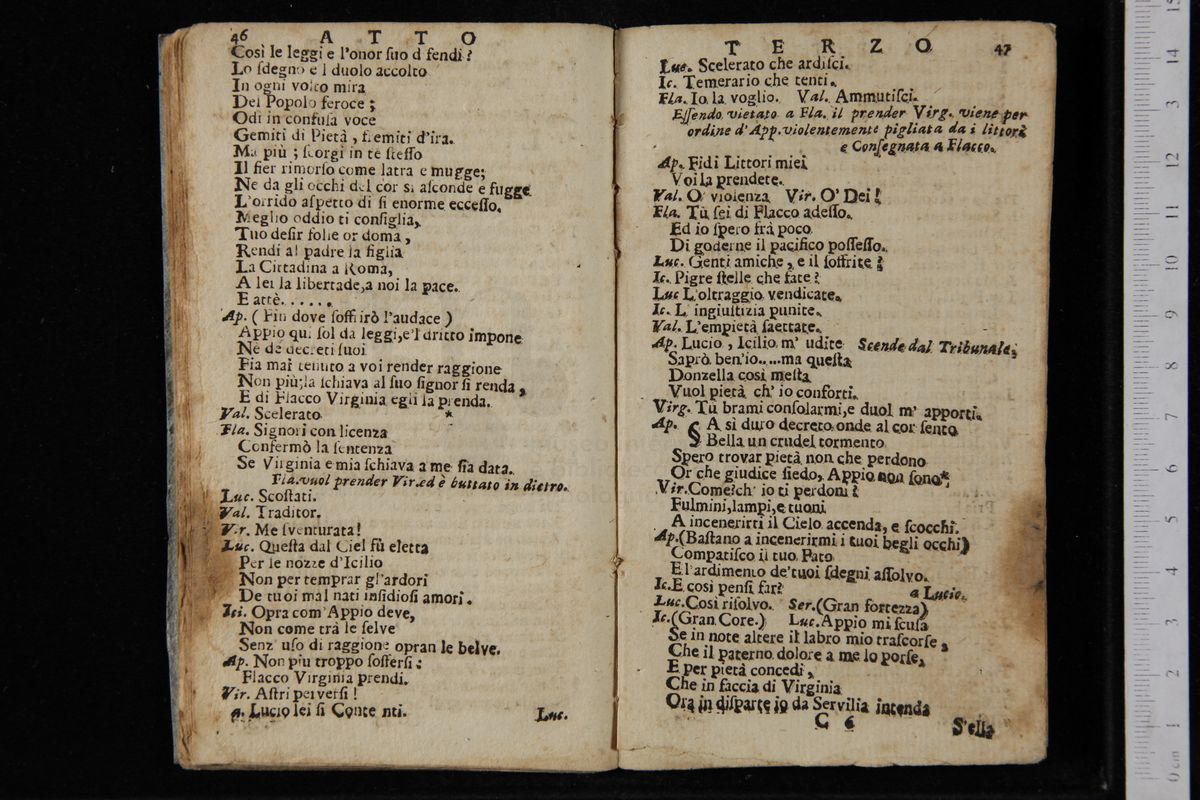 46 A T T O
Così le leggi e l'onor ſuo d fendi?
Lo ſdegno e l duolo accolto
In ogni volto mira
Del Popolo feroce;
Odi in confuſa voce
Gemiti di Pietà, fremiti d'ira.
Ma più; ſcorgi in te ſteſſo
Il fier rimorſo come latra e mugge;
Ne da gli occhi del cor si aſconde e fugge
L'orrido aſpetto di ſi enorme ecceſſo.
Meglio oddio ti conſiglia,
Tuo deſir folle or doma,
Rendi al padre la figlia
La Cittadina a Roma,
A lei la libertade,a noi la pace.
E attè......
Ap. (Fin dove ſoffrirò l'audace)
Appio qui ſol da leggi,e'l dritto impone
Nè de decreti ſuoi
Fia mai tenuto a voi render raggione
Non più;la ſchiava al ſuo ſignor ſi renda,
E di Flacco Virginia egli la prenda.
Val. Scelerato *
Fla. Signori con licenza
Confermò la ſentenza
Se Virginia e mia ſchiava a me ſia data.
Fla.vuol prender Vir.ed è buttato in dietro.
Luc. Scoſtati.
Val. Traditor.
Vir. Me ſventurata!
Luc. Queſta dal Ciel fù eletta
Per le nozze d'Icilio
Non per temprar gl'ardori
De tuoi mal nati inſidioſi amori.
Ici. Opra com'Appio deve,
Non come trà le ſelve
Senz' uſo di raggione opran le belve.
Ap. Non più troppo ſofferſi:
Flacco Virginia prendi.
Vir. Aſtri perverſi!
a. Lucio lei ſi Conte nti.
Luc.
T E R Z O 47
Luc. Scelerato che ardiſci.
Ic. Temerario che tenti.
Fla. Io la voglio. Val. Ammutiſci.
Eſſendo vietato a Fla. il prender Virg. viene per
ordine d'App.violentemente pigliata da i littori
e Conſegnata a Flacco.
Ap. Fidi Littori miei
Voi la prendete.
Val. O' violenza Vir. O' Dei!
Fla. Tù ſei di Flacco adeſſo.
Ed io ſpero frà poco
Di goderne il pacifico poſſeſſo.
Luc. Genti amiche, e il ſoffrite?
Ic. Pigre ſtelle che fate?
Luc L'oltraggio vendicate.
Ic. L' ingiuſtizia punite.
Val. L'empietà ſaettate.
Ap. Lucio, Icilio m' udite Scende dal Tribunale;
Saprò ben'io.....ma queſta
Donzella così meſta
Vuol pietà ch' io conforti.
Virg. Tù brami conſolarmi,e duol m' apporti.
Ap. § A sì duro decreto onde al cor ſento
Bella un crudel tormento
Spero trovar pietà non che perdono
Or che giudice ſiedo, Appio non ſono*
Vir.Come?ch' io ti perdoni?
Fulmini,lampi,e tuoni
A incenerirti il Cielo accenda, e ſcocchi.
Ap.(Baſtano a incenerirmi i tuoi begli occhi)
Compatiſco il tuo Fato
E l'ardimento de'tuoi ſdegni aſſolvo.
Ic.E così penſi far? a Lucio.
Luc.Così riſolvo. Ser.(Gran fortezza)
Ic.(Gran Core.) Luc.Appio mi ſcuſa
Se in note altere il labro mio traſcorſe,
Che il paterno dolore a me lo porſe,
E per pietà concedi,
Che in faccia di Virginia
Ora in diſparte io da Servilia intenda
C 6 S'ella